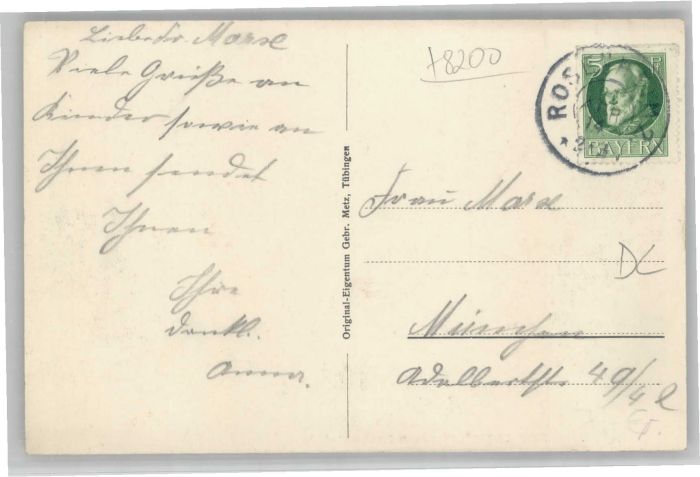 Liebe Fr. Marx
Viele Grüße an
Kinder sowie an
Ihnen sendet
Ihnen
Ihre
dankb.
Anna.
Original-Eigentum Gebr. Metz, Tübingen
78200
5 PF
BAYERN
ROS
Frau Marx
DC
München
Adalbertstr. 49/4